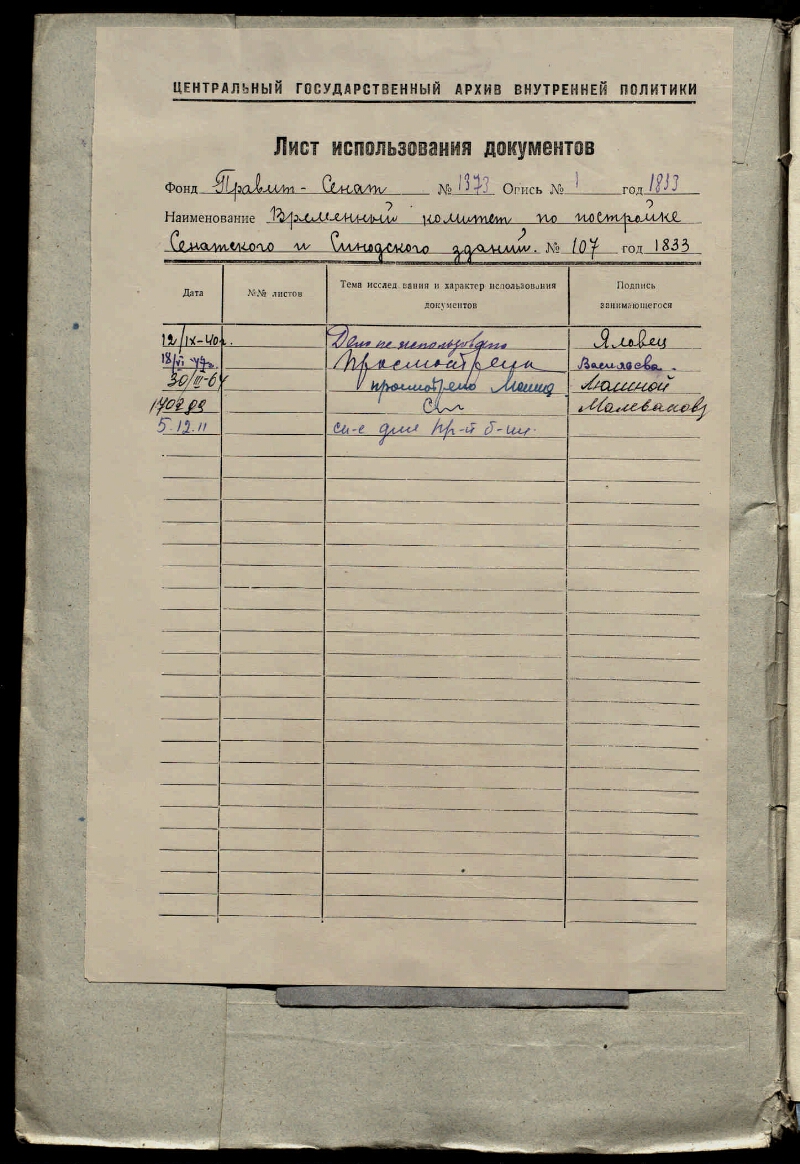 ЦЕНТРАЛЬНЫЙ ГОСУДАРСТВЕННЫЙ АРХИВ ВНУТРЕННЕЙ ПОЛИТИКИ
Лист использования документов
Фонд Правит-Сенат № 1373 Опись № 1 год 1833
Наименование Временный комитет по постройке
Сенатского и Синодского зданий. № 107 год 1833
Дата №№ листов Тема исслед вания и характер использования документов Подпись занимающегося
12/IX-40г. Дело не использовано Яловец
18/VI 47г. Просмотрена Васильева.
30/III-64 просмотрено
5.12.11